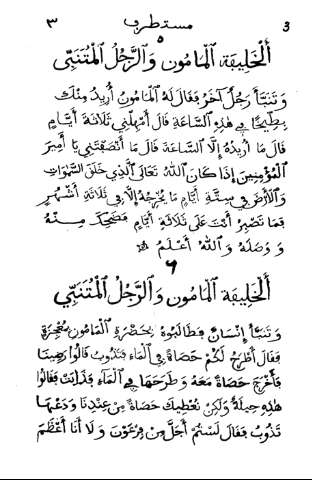 ٣ مستطرف 3
٥
اَلْخَلِيفَة الْمَامُون وَالرَّجُلُ الْمُتَنَبِّي
وَتَنَبَّأَ رَجُلٌ آخَرُ فَقَالَ لَهُ الْمَامُونُ أُرِيدُ مِنْكَ
بِطِّيخًا فِي هٰذِهِ السَّاعَةِ قَالَ أَمْهِلْنِي ثَلَاثَةَ أَيَّامٍ
قَالَ مَا أُرِيدُهُ إِلَّا السَّاعَةَ قَالَ مَا أَنْصَفْتَنِي يَا أَمِيرَ
الْمُؤْمِنِينَ إِذَا كَانَ اللّٰهُ تَعَالَى الَّذِي خَلَقَ السَّمٰوَاتِ
وَالْأَرْضَ فِي سِتَّةِ أَيَّامٍ مَا يُخْرِجُهُ إِلَّا فِي ثَلَاثَةِ أَشْهُرٍ
فَمَا تَصْبِرُ أَنْتَ عَلَى ثَلَاثَةِ أَيَّامٍ فَضَحِكَ مِنْهُ
وَوَصَلَهُ وَاللّٰهُ أَعْلَمُ
٦
اَلْخَلِيفَة الْمَامُون وَالرَّجُلُ الْمُتَنَبِّي
وَتَنَبَّأَ إِنْسَانٌ فَطَالَبُوهُ بِحَضْرَةِ الْمَامُونِ بِمُعْجِزَةٍ
فَقَالَ أَطْرَحُ لَكُمْ حَصَاةً فِي الْمَاءِ فَتَذُوبُ قَالُوا رَضِينَا
فَأَخْرَجَ حَصَاةً مَعَهُ وَطَرَحَهَا فِي الْمَاءِ فَذَابَتْ فَقَالُوا
هٰذِهِ حِيلَةٌ وَلٰكِنْ نُعْطِيكَ حَصَاةً مِنْ عِنْدِنَا وَدَعْهَا
تَذُوبُ فَقَالَ لَسْتُمْ أَجَلَّ مِنْ فِرْعَوْنَ وَلَا أَنَا أَعْظَمَ